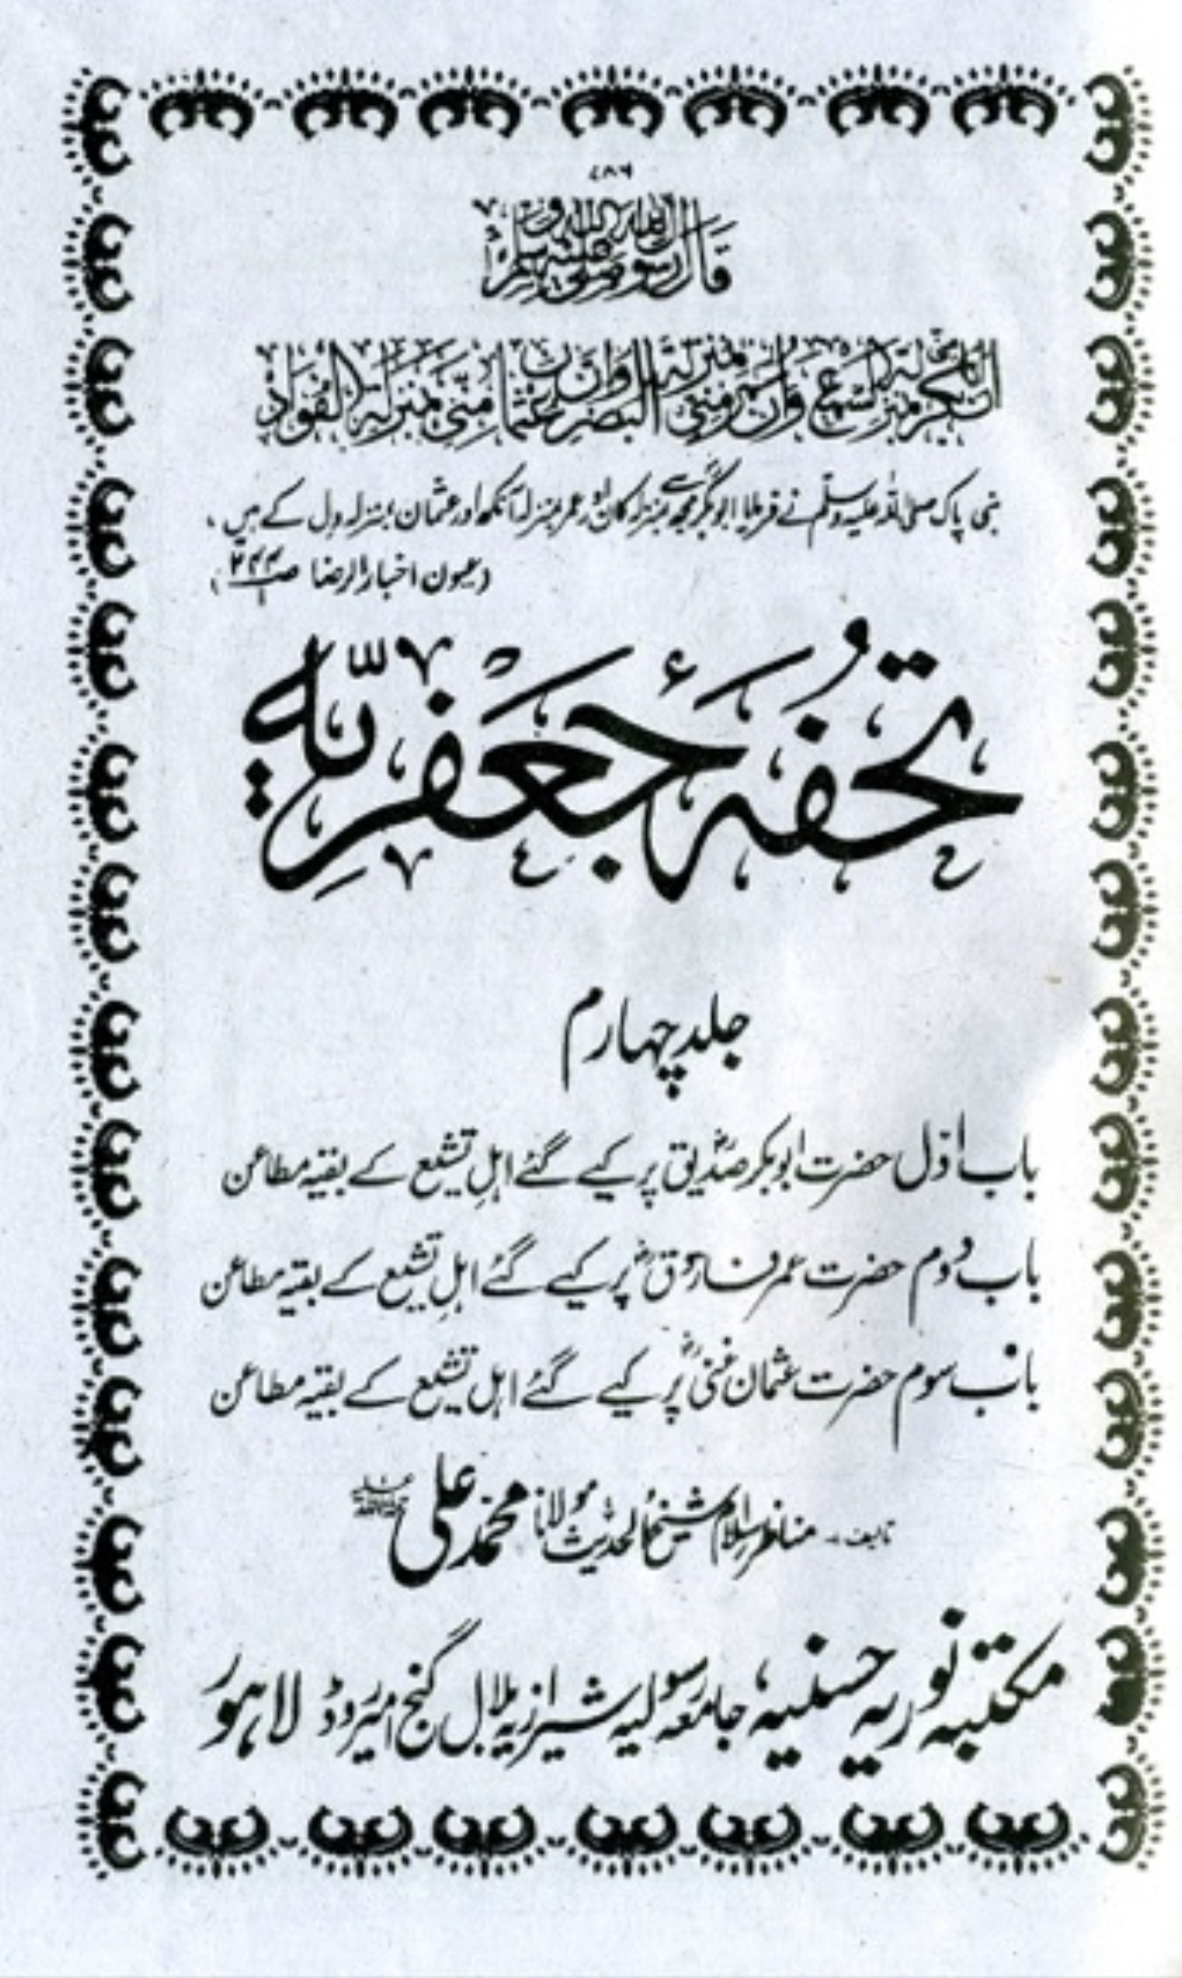 ۷۸۶
قال رسول الله صلى الله عليه وسلم
ان ابابكر منی بمنزلة السمع وان عمر منی بمنزلة البصر وان عثمان منی بمنزلة الفواد
نبی پاک صلی اللہ علیہ وسلم نے فرمایا ابوبکر مجھ سے بمنزلہ کان اور عمر بمنزلہ آنکھ اور عثمان بمنزلہ دل کے ہیں ۔
(عیون اخبار الرضا ص۲۴۴)
تحفۂ جعفریہ
جلد چہارم
باب اوّل حضرت ابوبکر صدیقؓ پر کیے گئے اہلِ تشیع کے بقیہ مطاعن
باب دوم حضرت عمر فاروقؓ پر کیے گئے اہلِ تشیع کے بقیہ مطاعن
باب سوم حضرت عثمان غنیؓ پر کیے گئے اہل تشیع کے بقیہ مطاعن
تالیف :۔ مناظر اسلام شیخ الحدیث مولانا محمد علی رحمۃ اللہ علیہ
مکتبہ نوریہ حسنیہ، جامعہ رسولیہ شیرازیہ بلال گنج امیر روڈ لاہور